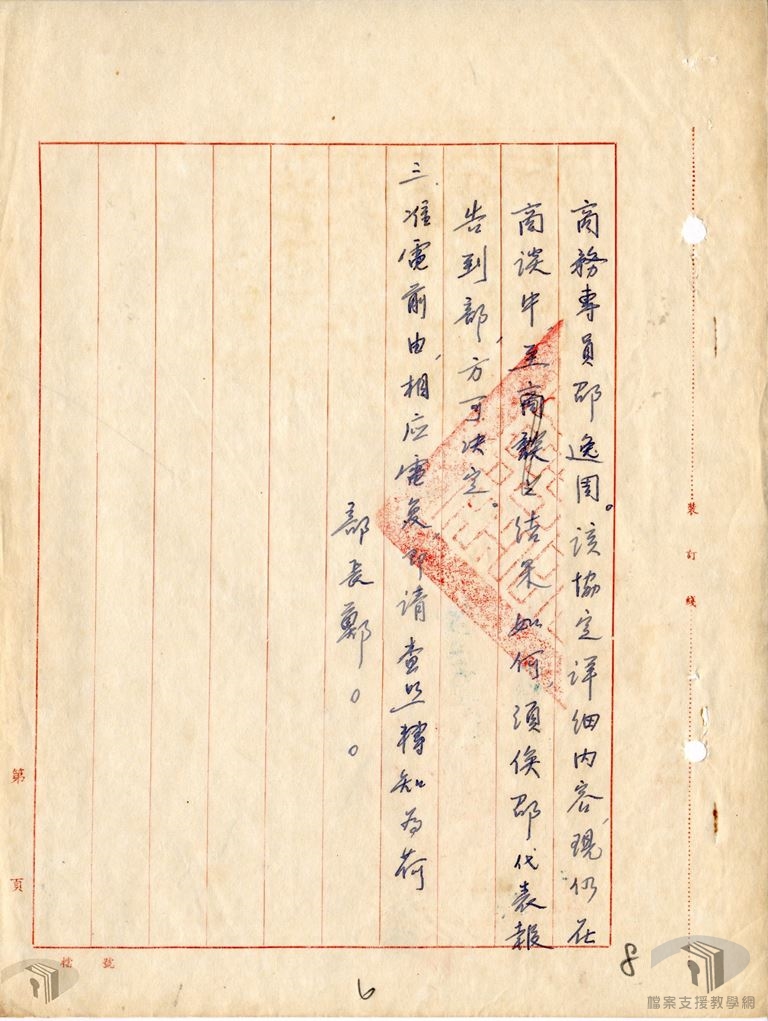 商務專員邵逸周。該協定詳細內容，現仍在
商談中，至商談之結果如何，須俟邵代表報
告到部，方可決定。
三、准電前由，相应電復，即請查照轉知為荷
部長鄭○○
裝訂線
第 頁
檔號
8
6
檔案支援教學網